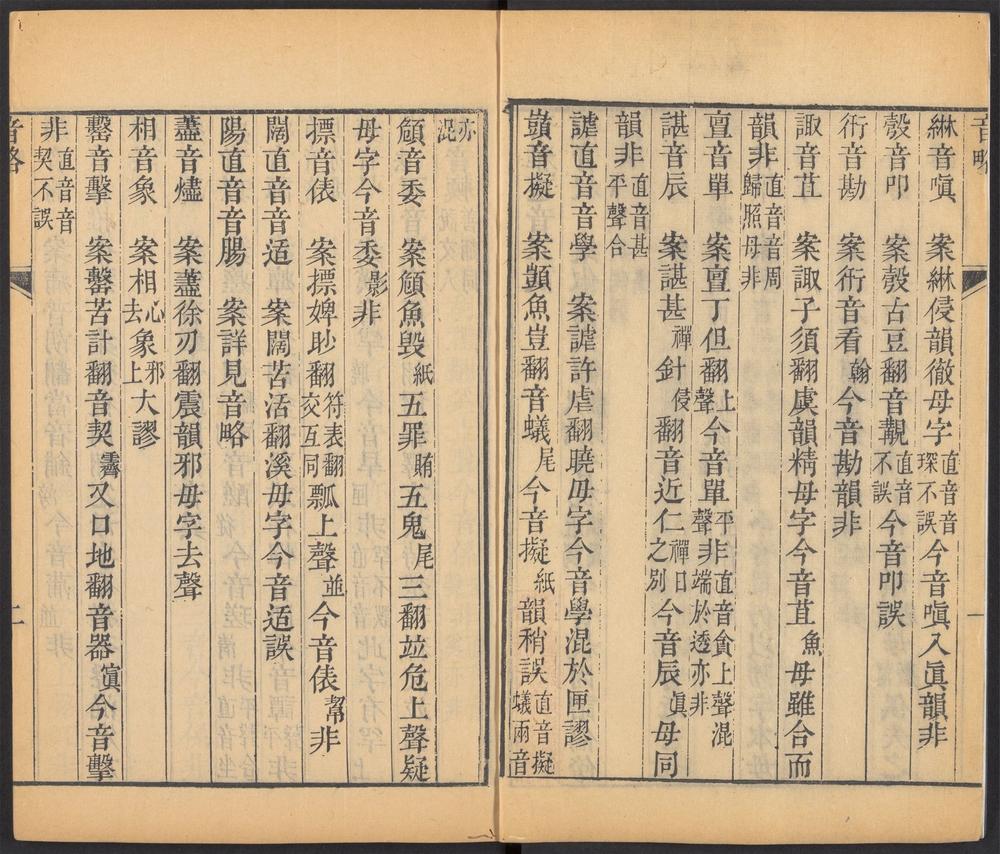 音略 一
綝音嗔 案綝侵韻徹母字直音音琛不誤今音嗔入眞韻非
瞉音叩 案瞉古豆翻音觏直音不誤今音叩誤
衎音勘 案衎音看翰今音勘韻非
諏音苴 案諏子須翻虞韻精母字今音苴魚母雖合而
韻非直音音周歸照母非
亶音單 案亶丁但翻上聲今音單平聲非直音貪上聲混端於透亦非
諶音辰 案諶甚禪針侵翻音近仁之別禪日今音辰眞母同
韻非直音甚平聲合
謔直音音學 案謔許虐翻曉母字今音學混於匣謬
顗音擬 案顗魚豈翻音蟻尾今音擬紙韻稍誤直音擬蟻兩音
亦混
頠音委 案頠魚毀紙五罪賄五鬼尾三翻竝危上聲疑
母字今音委影非
摽音俵 案摽婢眇翻符表翻交互同瓢上聲並今音俵幫非
闊直音音适 案闊苦活翻溪母字今音适誤
陽直音音腸 案詳見音略
藎音燼 案藎徐刃翻震韻邪母字去聲
相音象 案相心去象邪上大謬
罄音擊 案罄苦計翻音契霽又口地翻音器寘今音擊
非直音音契不誤
音略 二